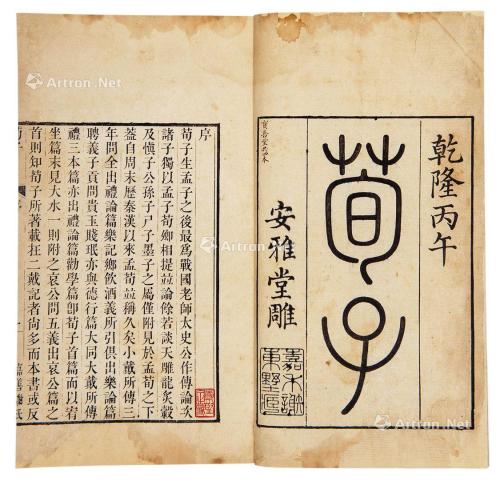 乾隆丙午
荀子
安雅堂雕
嘉善謝氏藏板
序
荀子生孟子之後最爲戰國老師太史公作傳論次
諸子獨以孟子荀卿相提並論餘若談天雕龍炙轂
及愼子公孫子尸子墨子之屬僅附見於孟荀之下
蓋自周末歷秦漢以來孟荀並稱久矣小戴所傳三
年問全出禮論篇樂記鄉飲酒義所引俱出樂論篇
聘義子貢問貴玉賤珉亦與德行篇大同大戴所傳
禮三本篇亦出禮論篇勸學篇卽荀子首篇而以宥
坐篇末見大水一則附之哀公問五義出哀公篇之
首則知荀子所著載在二戴記者尙多而本書或反
荀子
序
一
Artron.Net
Artron.Net
Artron.Net
Artron.Net